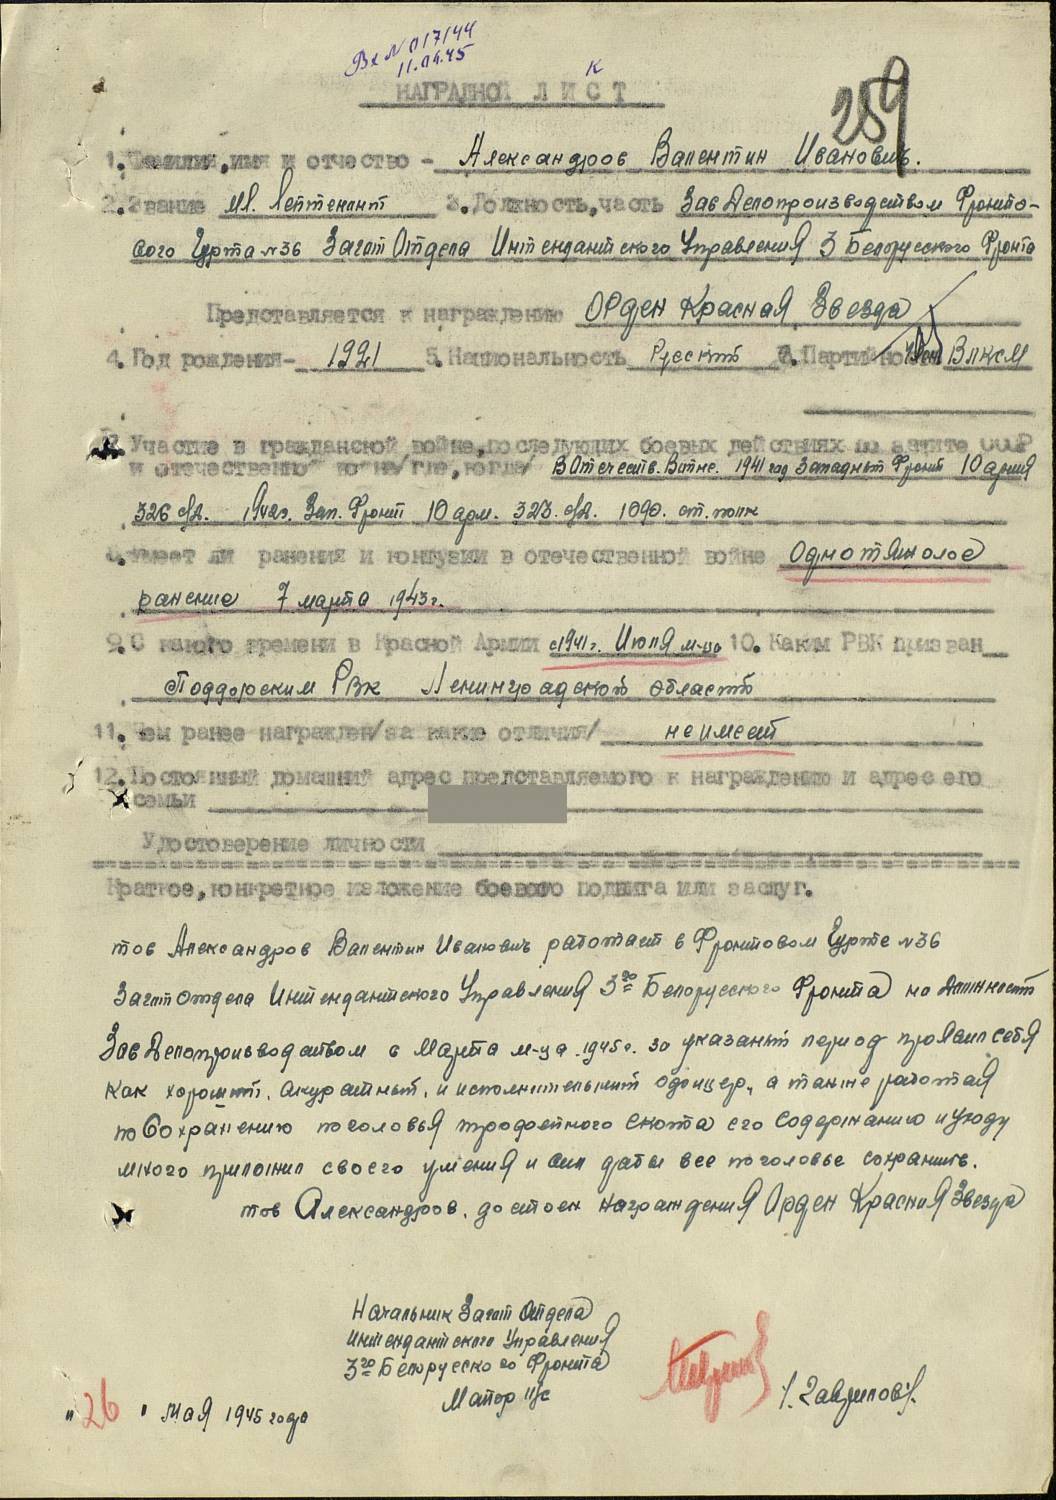 Вх N 017144
11.04.45
К
НАГРАДНОЙ ЛИСТ
259
1. Фамилия, имя и отчество - Александров Валентин Иванович.
2. Звание мл. Лейтенант 3. Должность, часть Зав Делопроизводством Фронто-
вого Гурта N36 Загот Отдела Интендантского Управления 3 Белорусского Фронта
Представляется к награждению Орден Красная Звезда
4. Год рождения- 1921 5. Национальность Русский 6. Партийность Член ВЛКСМ
7. Участие в гражданской войне, последующих боевых действиях по защите СССР
и отечественной войне/где, когда/ В Отечеств. Войне. 1941 год Западный Фронт 10 армия
326 сд. 1942г. Зап. Фронт 10 арм. 323 сд. 1090. ст. полк
8. Имеет ли ранения и контузии в отечественной войне Одно тяжолое
ранение 7 марта 1943г.
9. С какого времени в Красной Армии с 1941 г. Июля м-ца 10. Каким РВК призван
Поддорским РВК Ленинградской области
11. Чем ранее награжден/за какие отличия/ не имеет
12. Постоянный домашний адрес представляемого к награждению и адрес его
семьи
Удостоверение личности
Краткое, конкретное изложение боевого подвига или заслуг.
тов Александров Валентин Иванович работает в Фронтовом Гурте N36
Загот отдела Интендантского Управления 3го Белорусского Фронта на должность
Зав Делопроизводством с Марта м-ца 1945г. за указаный период проявил себя
как хороший, акуратный, и исполнительный офицер, а также работая
по Сохранению поголовья трофейного скота его содержанию и уходу
много приложил своего умения и сил дабы все поголовье сохранить.
тов Александров. достоен награждения Орден Красная Звезда
Начальник Загот Отдела
интендантского Управления
3го Белорусского Фронта
Майор и/с
/. Гаврилов /.
"26" мая 1945 года